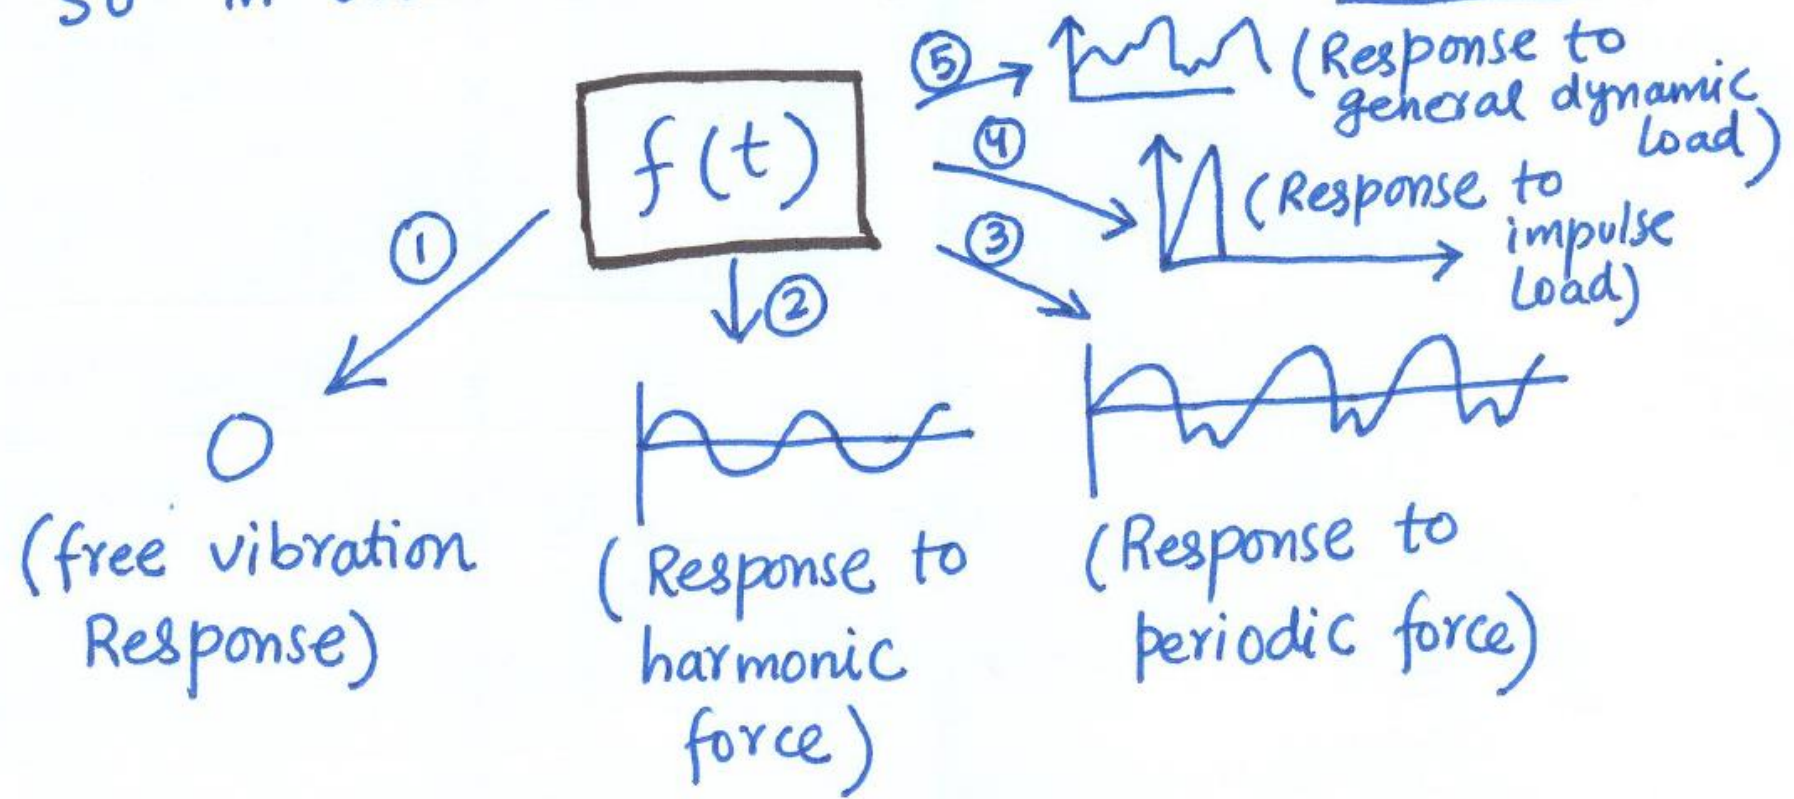 f(t)
①
②
③
④
⑤
(Response to
general dynamic
load)
(Response to
impulse
load)
(free vibration
Response)
(Response to
harmonic
force)
(Response to
periodic force)